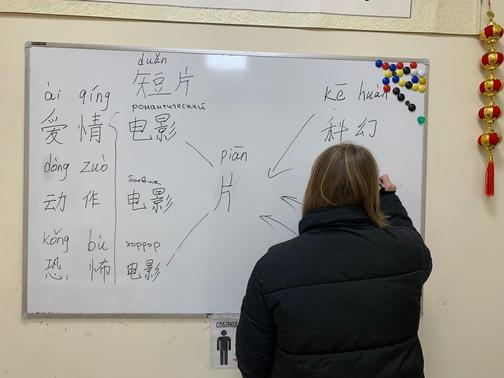 duǎn
短片
ài qíng
романтический
爱情 电影
dòng zuò
боевик
动作 电影
kǒng bù
хоррор
恐怖 电影
piān
片
kē huàn
科幻
СОБЛЮД